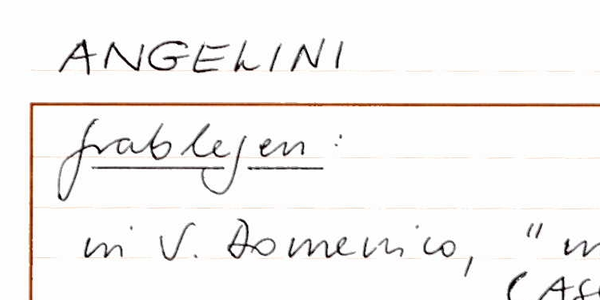 ANGELINI
Grablegen:
in V. Domenico, "
(